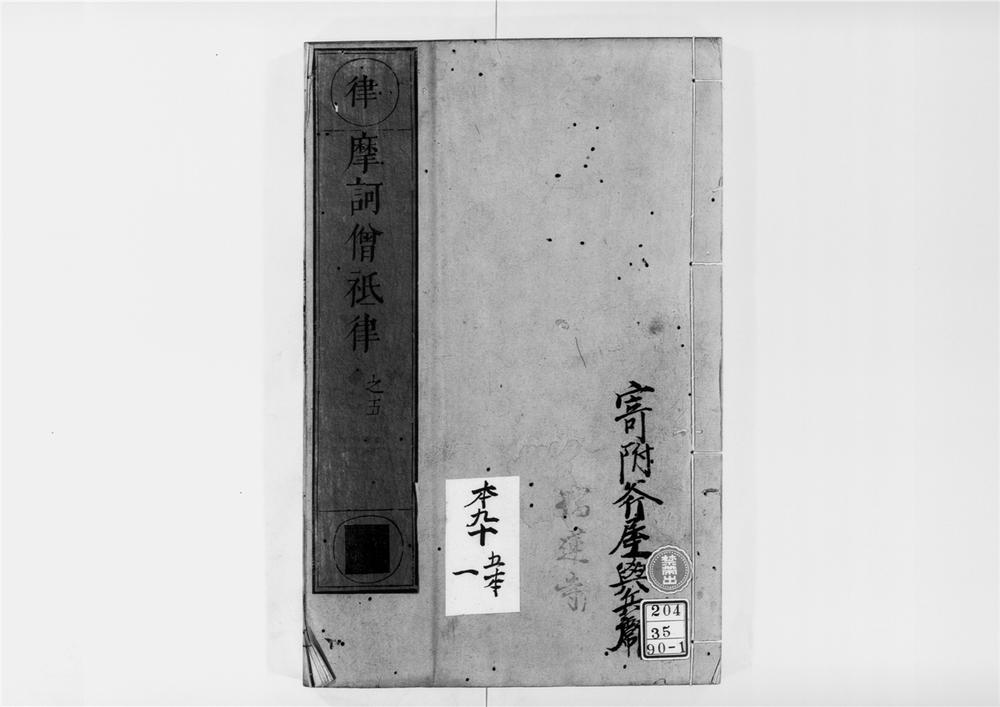 寄附斧屋與兵衞
禁帶出
204
35
90-1
本九十
五本
一
律
摩訶僧祇律
之五